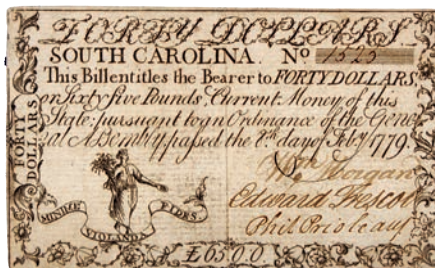 FORTY DOLLARS.
SOUTH CAROLINA. No 1525
This Bill entitles the Bearer to FORTY DOLLARS,
or Sixty five Pounds, Current Money of this
State, pursuant to an Ordinance of the Gene
ral Assembly, passed the 8th. day of Feby. 1779.
FORTY
DOLLARS
Wm. Morgan
Edward Trescot
Phil Prioleau
MINIME VIOLANDA FIDES
£65 0 0